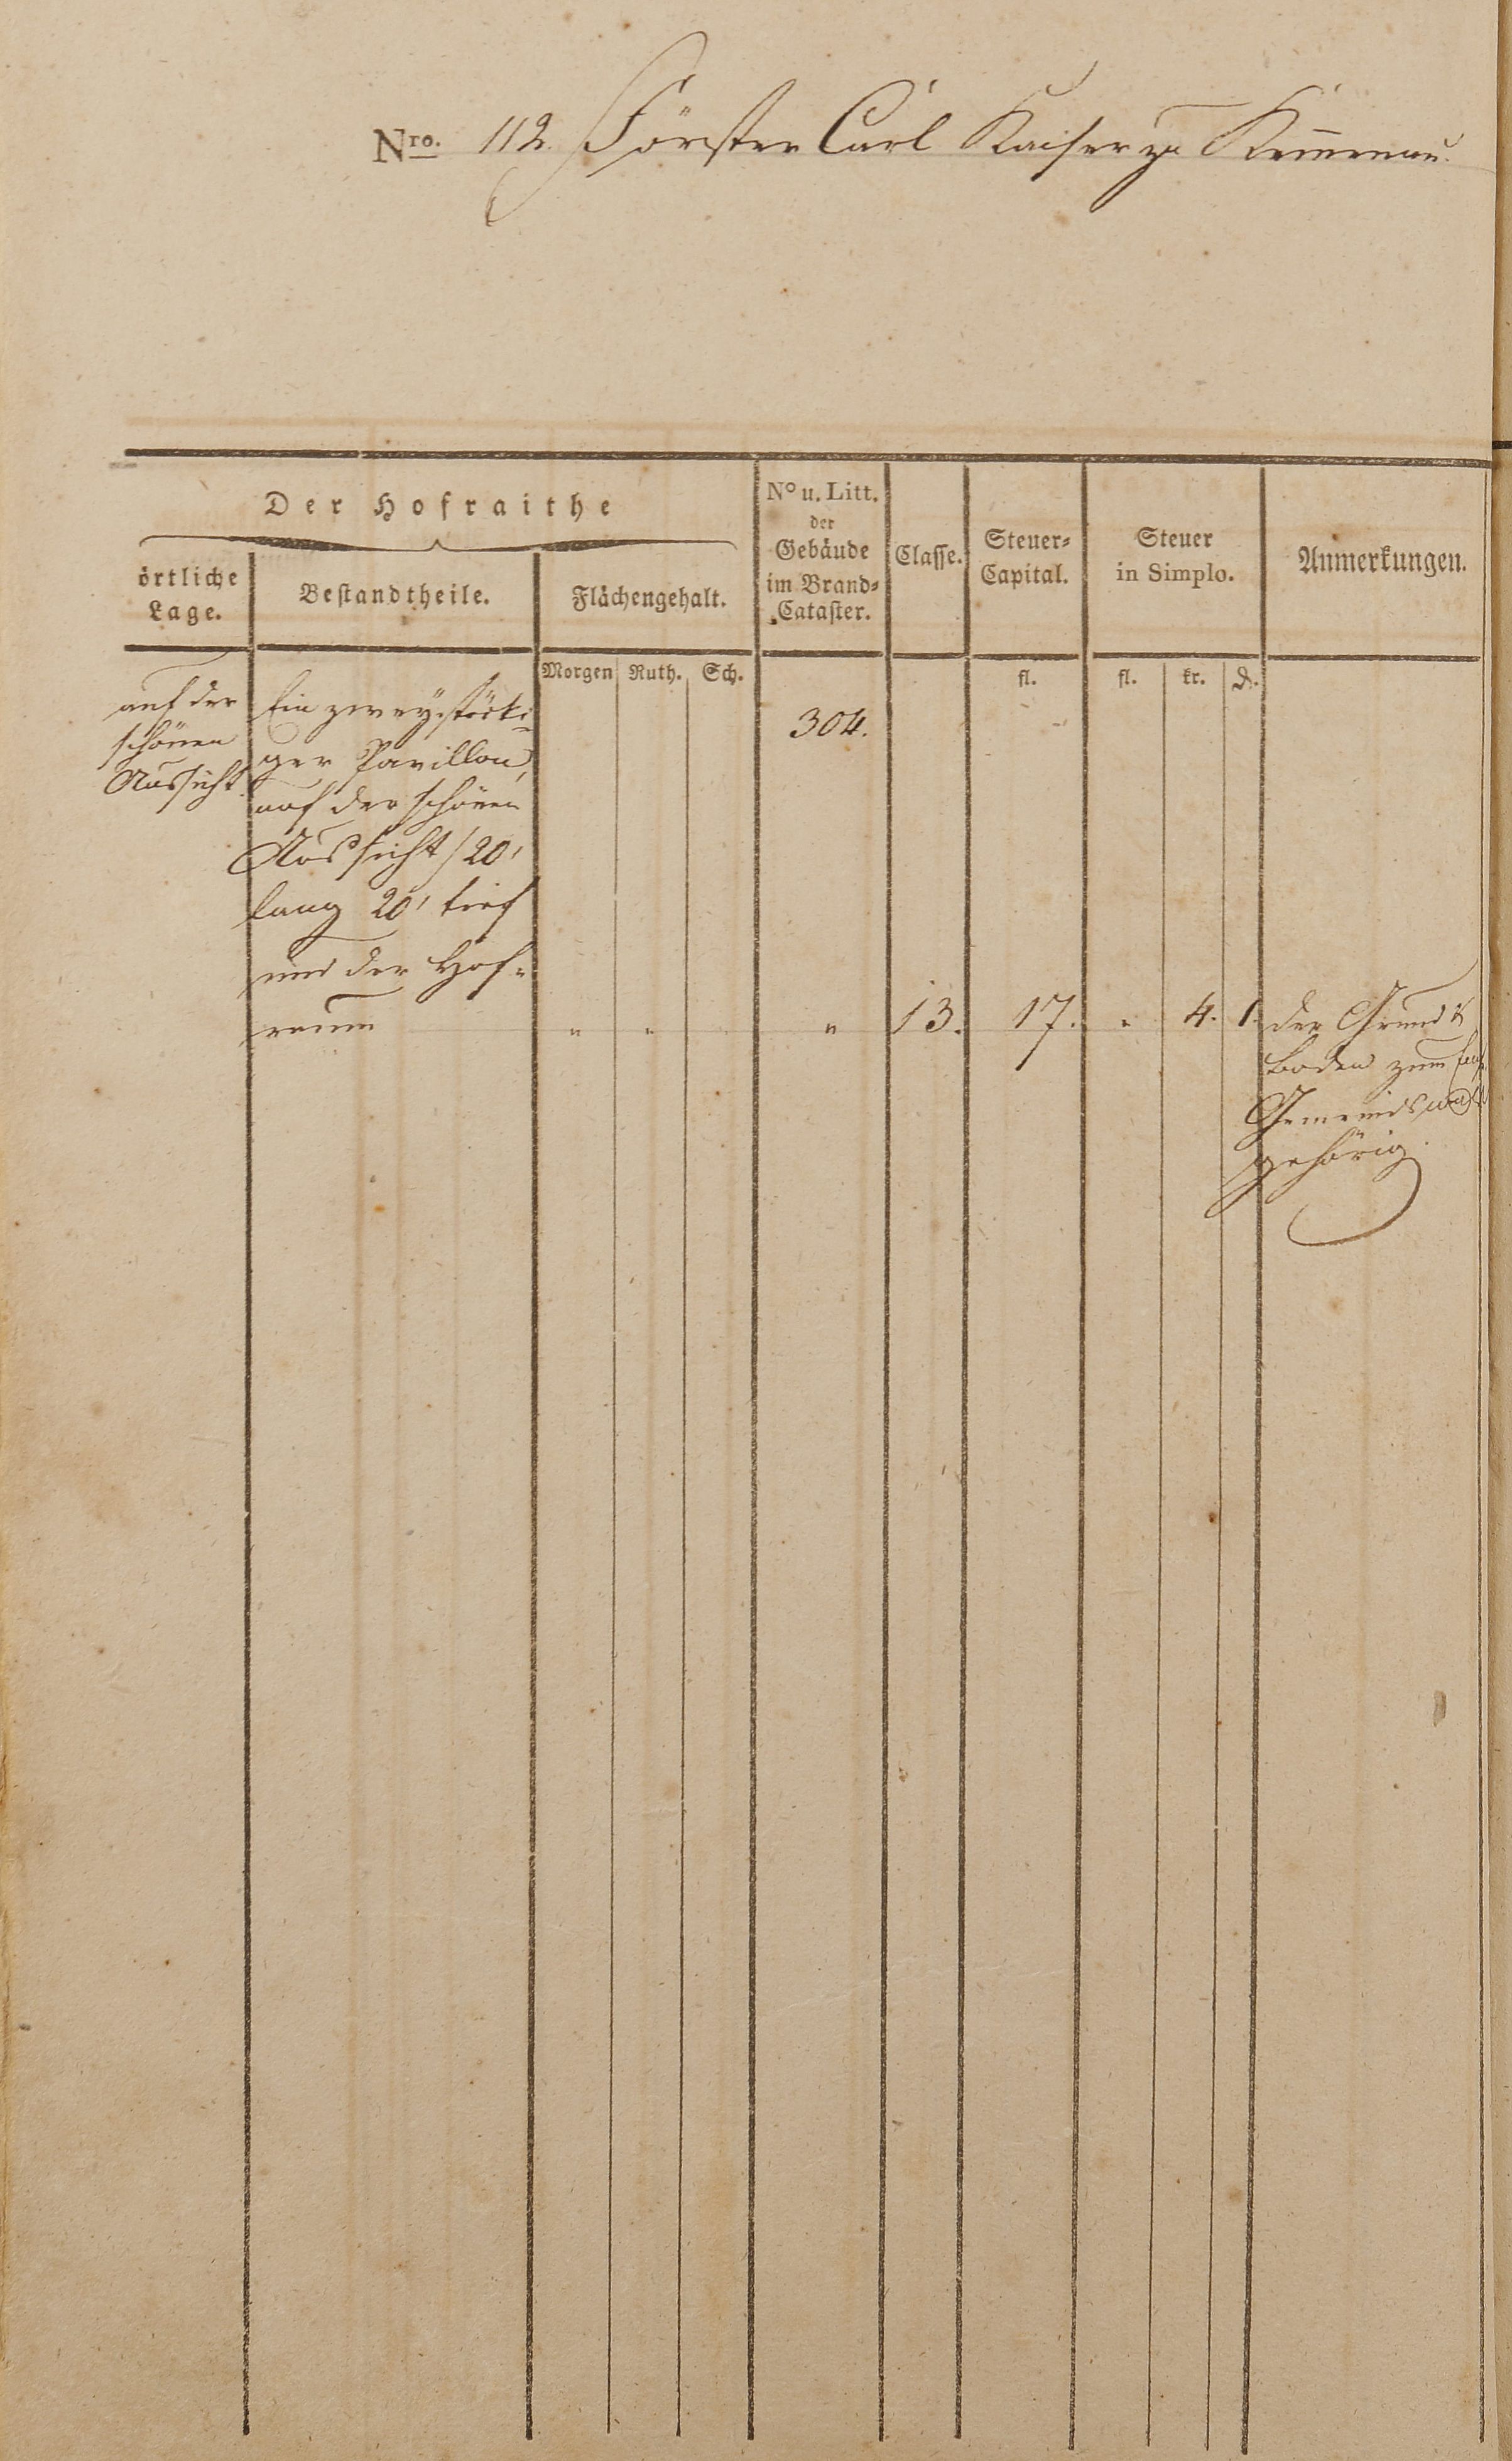 Nro. 112. Förster Carl Kaiser zu Kem̅enau.
Der Hofraithe
örtliche
Lage.
Bestandtheile.
Flächengehalt.
No u. Litt.
der
Gebäude
im Brand-
Cataster.
Classe.
Steuer-
Capital.
Steuer
in Simplo.
Anmerkungen.
Morgen Ruth. Sch. fl. fl. kr. d.
auf der
schönen
Aussicht.
Ein zwey stöcki-
ger Pavillon,
auf der schönen
Aussicht / 20'
lang 20' tief
und der Hof-
raum " " " 13. 17. " 4. 1.
304.
der Grund &
Boden zum
Gemeindswald
gehörig.